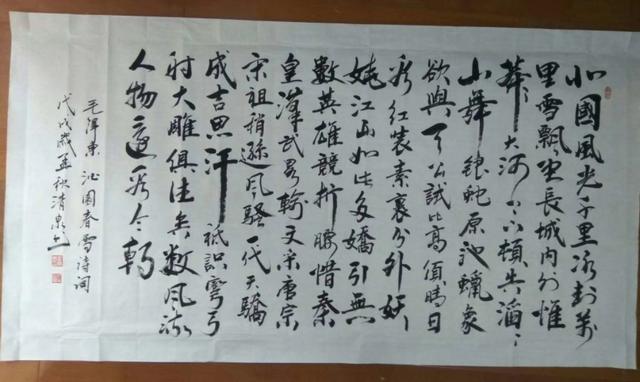 北國風光千里冰封萬
里雪飄望長城內外惟
莽〻大河上下頓失滔〻
山舞銀蛇原馳蠟象
欲與天公試比高須晴日
看紅裝素裹分外妖
嬈江山如此多嬌引無
數英雄競折腰惜秦
皇漢武略輸文采唐宗
宋祖稍遜風騷一代天驕
成吉思汗祗識彎弓
射大雕俱往矣數風流
人物還看今朝
毛澤東 沁園春雪詩詞
戊戌歲孟秋清泉書